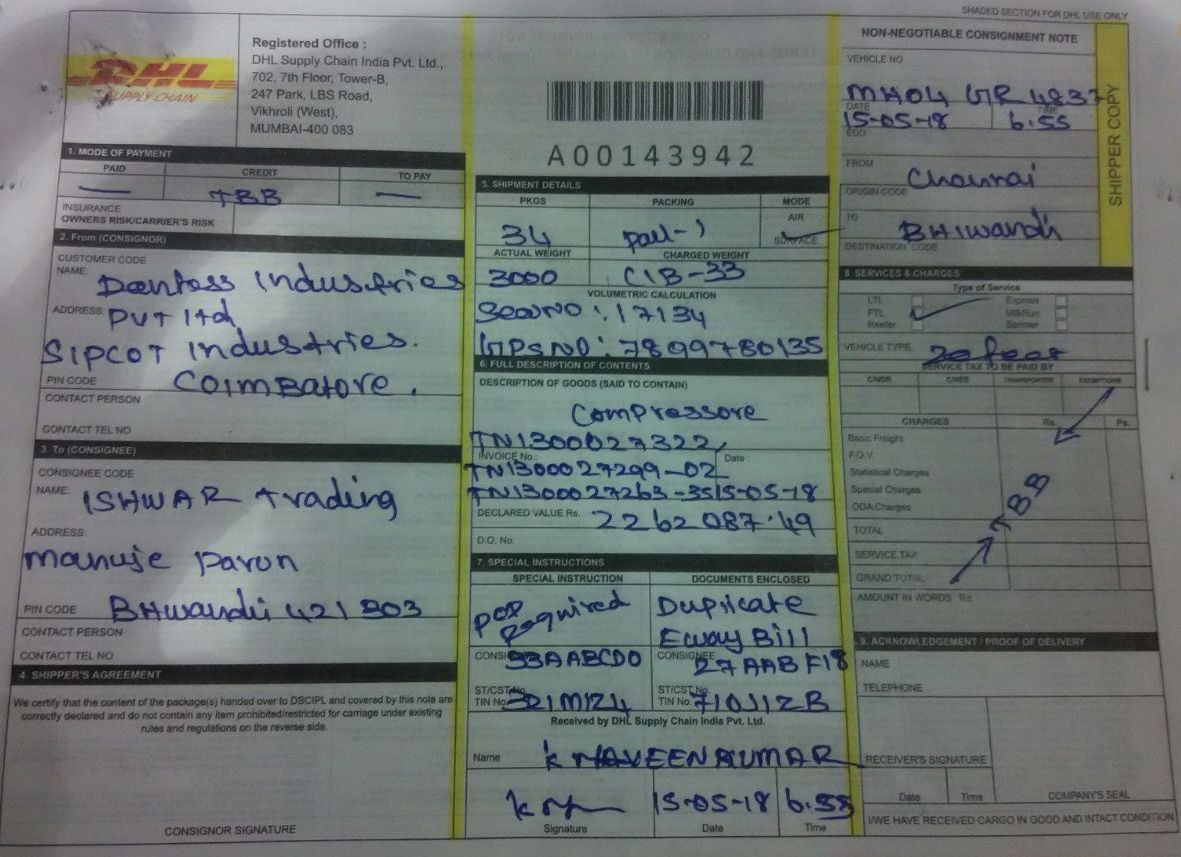 SHADED SECTION FOR DHL USE ONLY
DHL
SUPPLY CHAIN
Registered Office :
DHL Supply Chain India Pvt. Ltd.,
702, 7th Floor, Tower-B,
247 Park, LBS Road,
Vikhroli (West),
MUMBAI-400 083
A00143942
NON-NEGOTIABLE CONSIGNMENT NOTE
VEHICLE NO
MH04 GR 4837
DATE TIME
15-05-18 6.55
EDD
FROM
Chennai
ORIGIN CODE
TO
BHIWANDI
DESTINATION CODE
SHIPPER COPY
1. MODE OF PAYMENT
PAID CREDIT TO PAY
— TBB —
INSURANCE
OWNERS RISK/CARRIER'S RISK
2. From (CONSIGNOR)
CUSTOMER CODE
NAME: Danfoss Industries
ADDRESS: PVT ltd
SIPCOT Industries.
PIN CODE Coimbatore.
CONTACT PERSON
CONTACT TEL NO
3. To (CONSIGNEE)
CONSIGNEE CODE
NAME: ISHWAR trading
ADDRESS:
PIN CODE BHwandi 421303
CONTACT PERSON
CONTACT TEL NO
4. SHIPPER'S AGREEMENT
We certify that the content of the package(s) handed over to DSCIPL and covered by this note are
correctly declared and do not contain any item prohibited/restricted for carriage under existing
rules and regulations on the reverse side.
CONSIGNOR SIGNATURE
5. SHIPMENT DETAILS
PKGS PACKING MODE
34 AIR
SURFACE
ACTUAL WEIGHT CHARGED WEIGHT
3000 CIB-33
VOLUMETRIC CALCULATION
17134
GPSNO: 7899780135
6. FULL DESCRIPTION OF CONTENTS
DESCRIPTION OF GOODS (SAID TO CONTAIN)
Compressore
TN1300027322,
INVOICE No.: Date :
TN1300027299-02
TN1300027263-35 15-05-18
DECLARED VALUE Rs. 2262087.49
D.O. No.
7. SPECIAL INSTRUCTIONS
SPECIAL INSTRUCTION DOCUMENTS ENCLOSED
Required Duplicate
Eway Bill
CONSIGNOR 33AABCD0 CONSIGNEE 27AABF18
ST/CST No. ST/CST No.
TIN No. 321M1Z4 TIN No. 710J1ZB
Received by DHL Supply Chain India Pvt. Ltd.
Name K NAVEENKUMAR
15-05-18 6.55
Signature Date Time
8. SERVICES & CHARGES
Type of Service
LTL Express
FTL MilkRun
Reefer Sprinter
VEHICLE TYPE 20 feet
SERVICE TAX TO BE PAID BY
C/NOR C/NEE TRANSPORTER EXEMPTIONS
CHARGES Rs. Ps.
Basic Freight
F.O.V.
Statistical Charges
Special Charges
ODA Charges
TBB
TOTAL
SERVICE TAX
GRAND TOTAL
AMOUNT IN WORDS Rs.
9. ACKNOWLEDGEMENT / PROOF OF DELIVERY
NAME
TELEPHONE
RECEIVER'S SIGNATURE
Date Time COMPANY'S SEAL
I/WE HAVE RECEIVED CARGO IN GOOD AND INTACT CONDITION